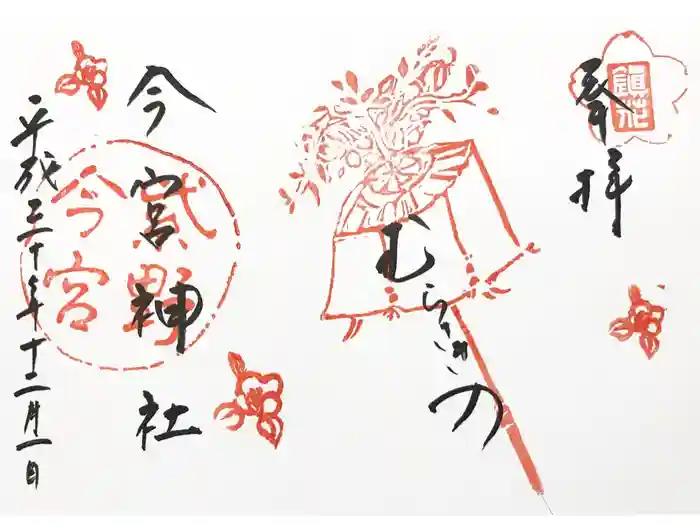 奉拝
鎮花
むらさきの
今宮神社
紫野
今宮
平成三十年十二月一日